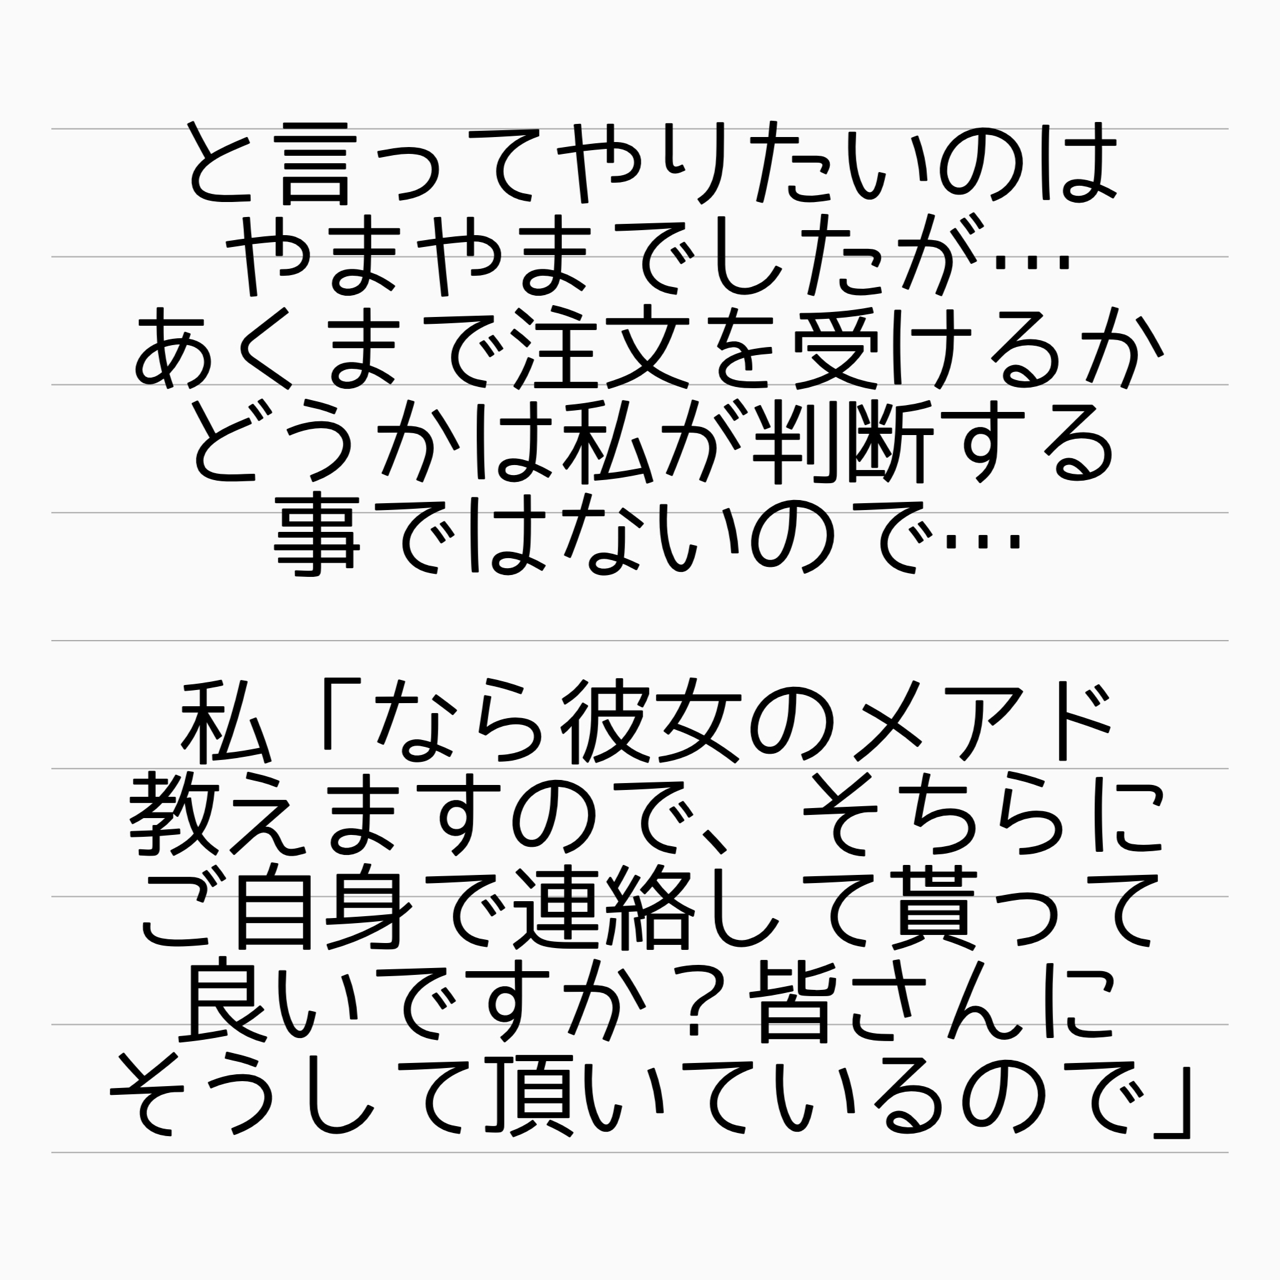 と言ってやりたいのは
やまやまでしたが…
あくまで注文を受けるか
どうかは私が判断する
事ではないので…
私「なら彼女のメアド
教えますので、そちらに
ご自身で連絡して貰って
良いですか？皆さんに
そうして頂いているので」